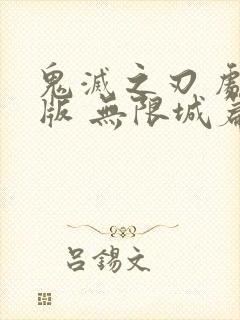 鬼滅之刃劇
版 無限城篇
呂錫文